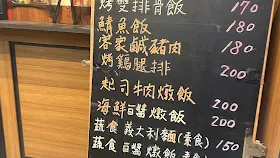 烤雙排骨飯 170
鯖魚飯 180
客家鹹豬肉 180
烤鷄腿排 200
起司牛肉燉飯 200
海鮮白醬燉飯 200
蔬食 義大利麵(素食) 150
蔬食 白醬燉飯 素食